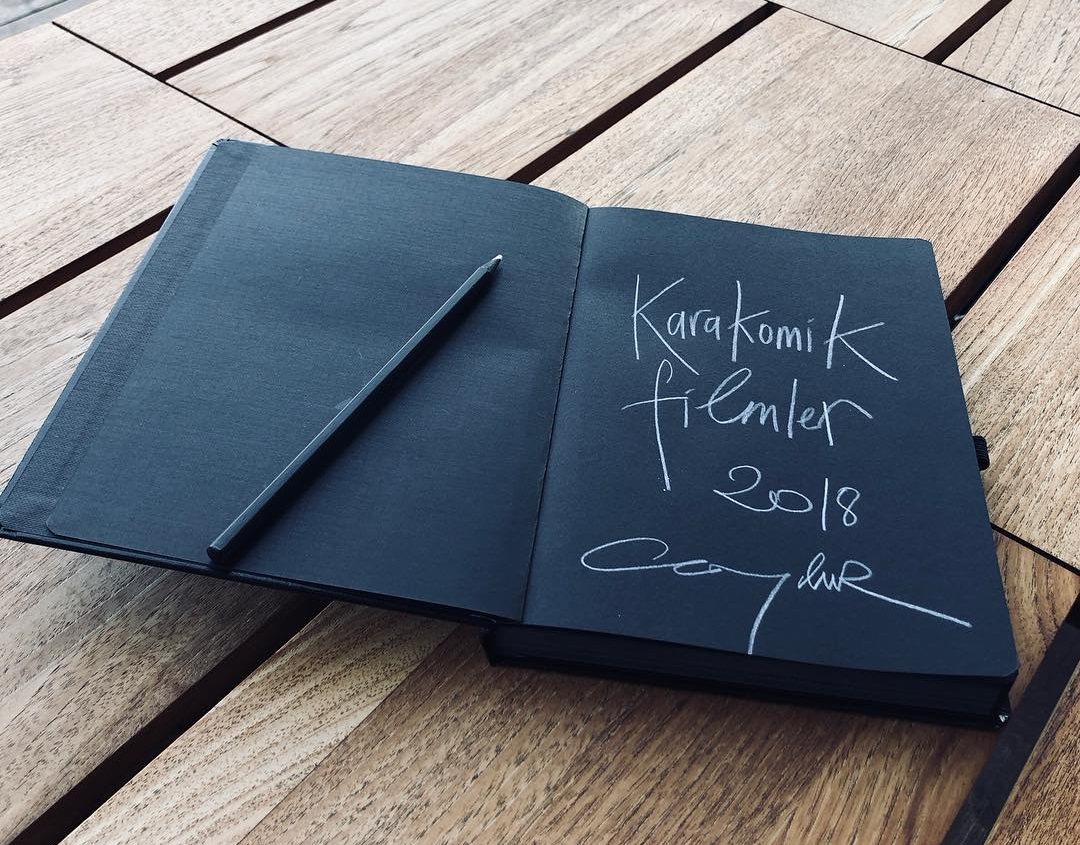 Karakomik
filmler
2018